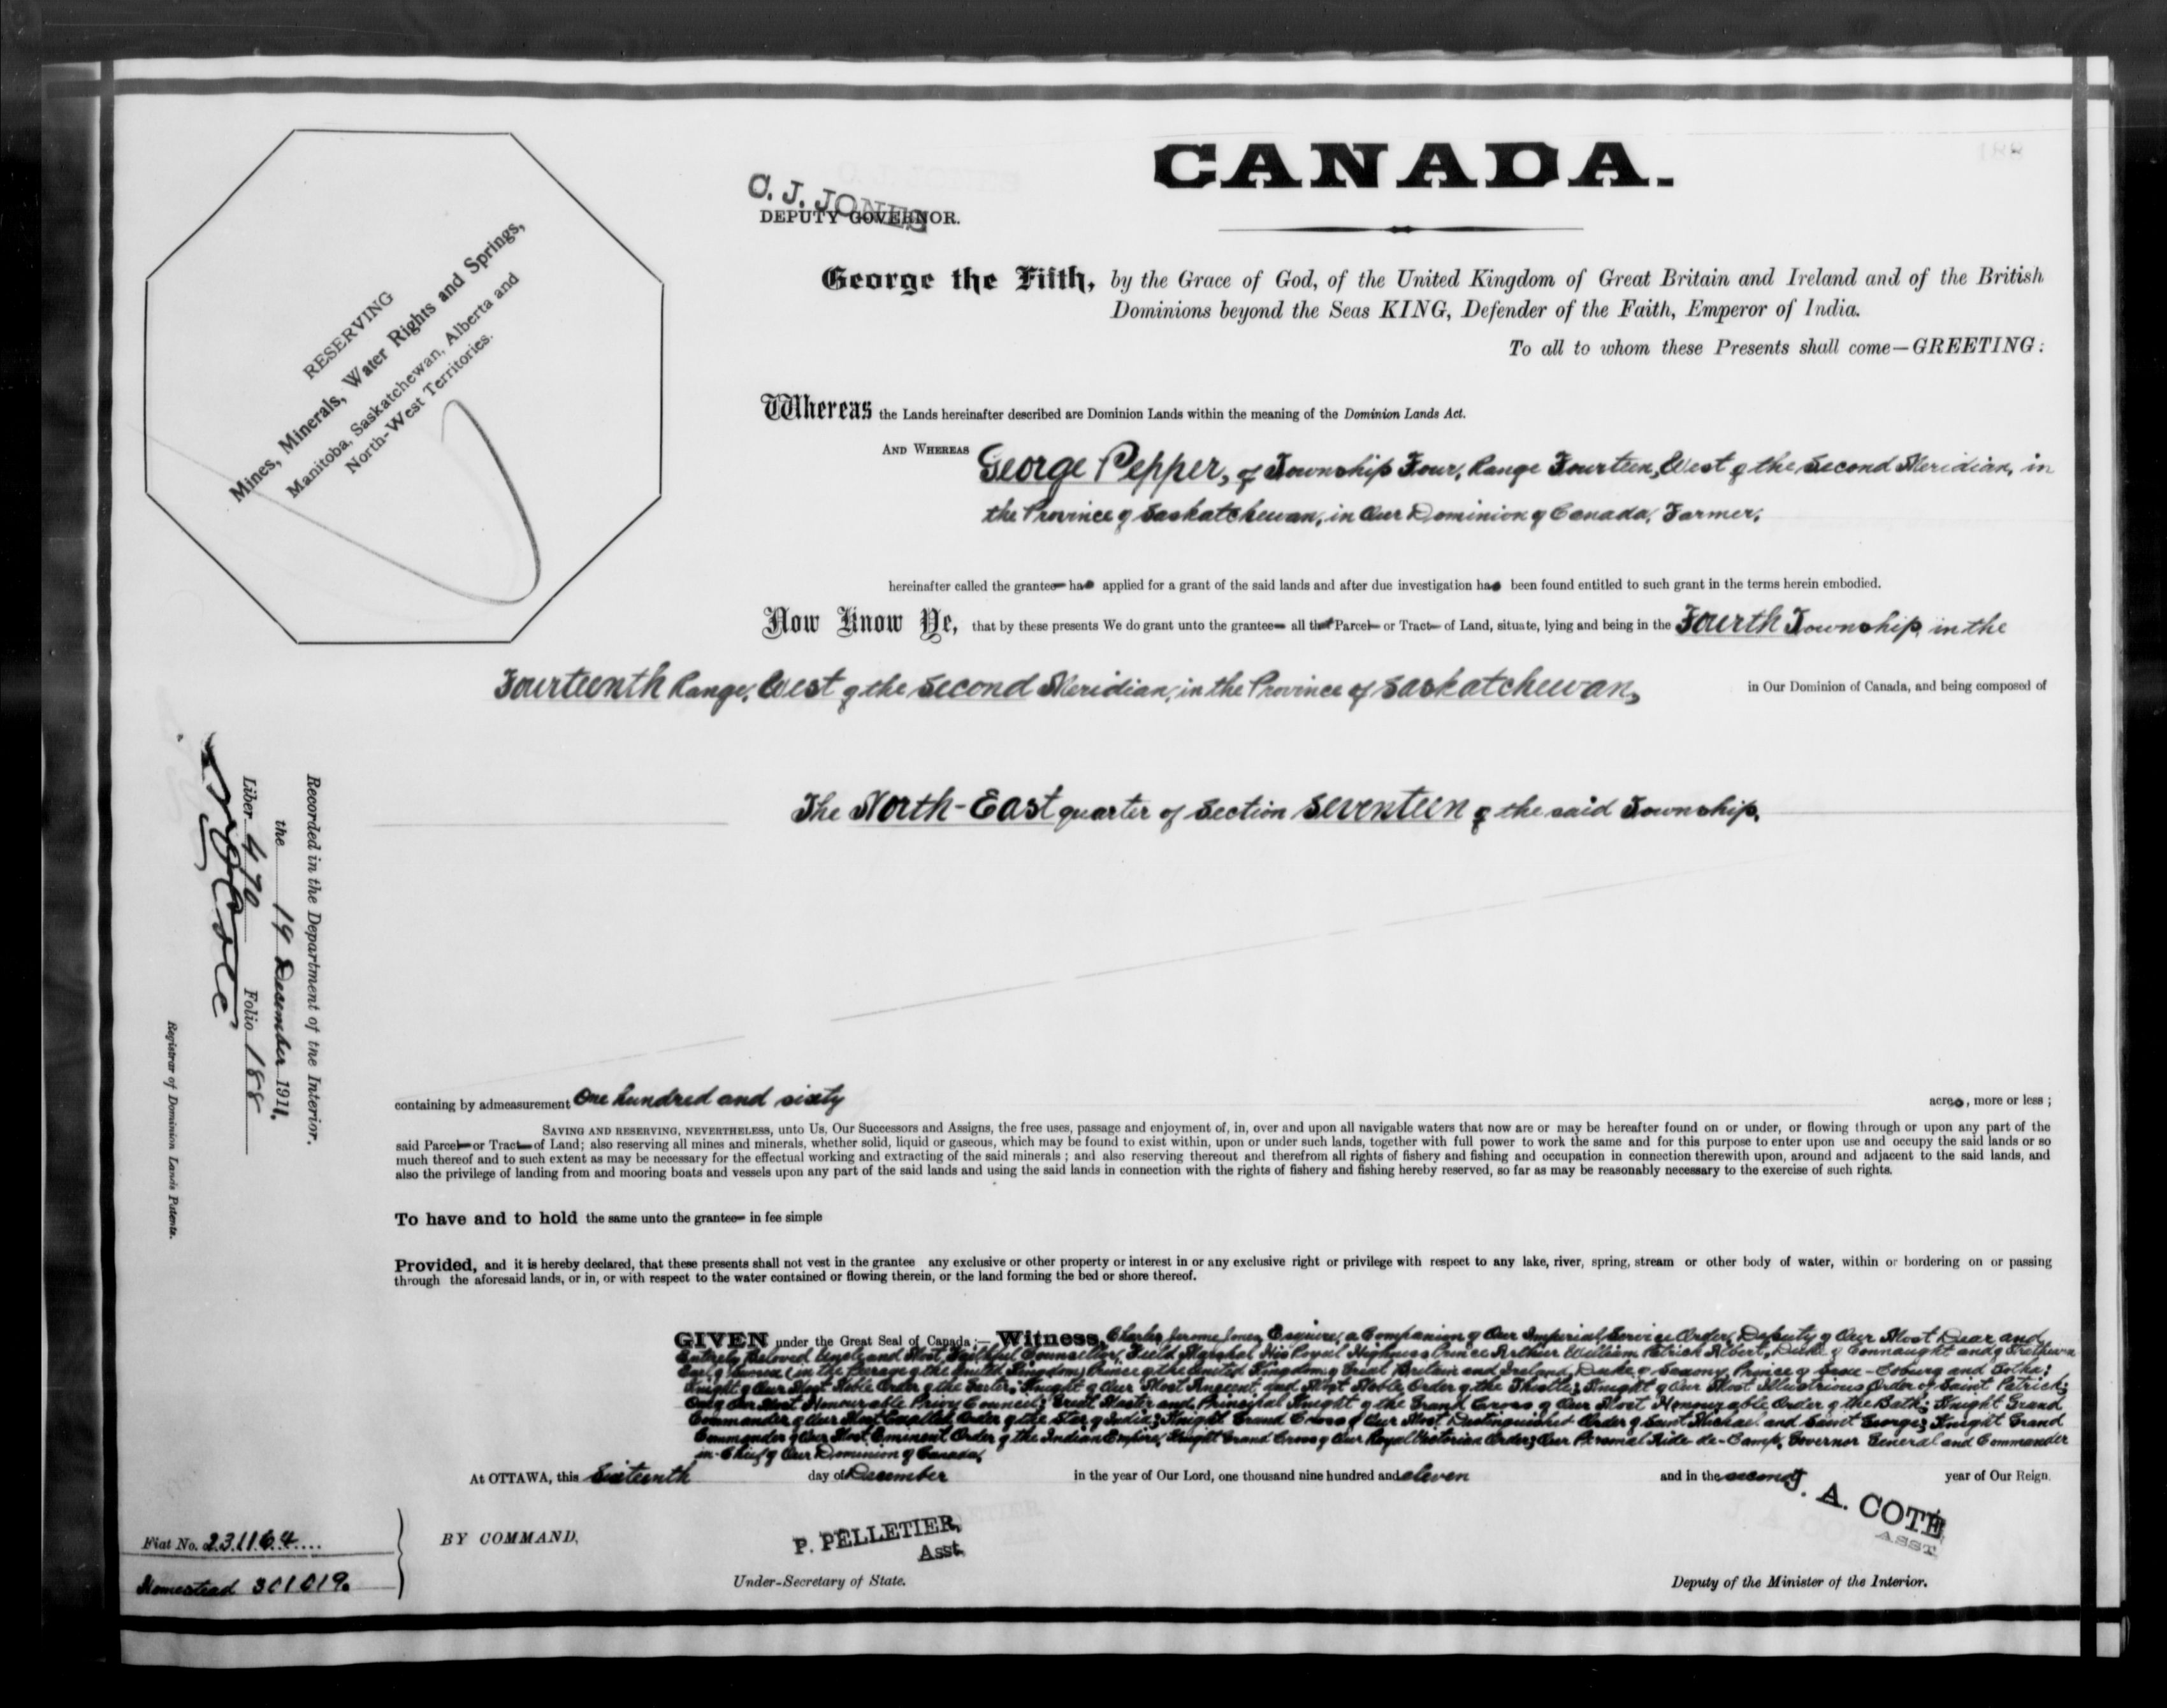 CANADA.
188
C. J. JONES
DEPUTY GOVERNOR.
RESERVING
Mines, Minerals, Water Rights and Springs,
Manitoba, Saskatchewan, Alberta and
North-West Territories.
George the Fifth, by the Grace of God, of the United Kingdom of Great Britain and Ireland and of the British
Dominions beyond the Seas KING, Defender of the Faith, Emperor of India.
To all to whom these Presents shall come—GREETING:
Whereas the Lands hereinafter described are Dominion Lands within the meaning of the Dominion Lands Act.
AND WHEREAS George Pepper, of Township Four, Range Fourteen, West of the Second Meridian, in
the Province of Saskatchewan, in Our Dominion of Canada, Farmer,
hereinafter called the grantee has applied for a grant of the said lands and after due investigation has been found entitled to such grant in the terms herein embodied.
Now Know Ye, that by these presents We do grant unto the grantee all that Parcel or Tract of Land, situate, lying and being in the Fourth Township, in the
Fourteenth Range, West of the Second Meridian, in the Province of Saskatchewan, in Our Dominion of Canada, and being composed of
The North-East quarter of Section Seventeen of the said Township,
Recorded in the Department of the Interior.
the 19 December 1911.
Liber 470 Folio 188
Registrar of Dominion Lands Patents.
containing by admeasurement One hundred and sixty acres, more or less;
SAVING AND RESERVING, NEVERTHELESS, unto Us, Our Successors and Assigns, the free uses, passage and enjoyment of, in, over and upon all navigable waters that now are or may be hereafter found on or under, or flowing through or upon any part of the
said Parcel or Tract of Land; also reserving all mines and minerals, whether solid, liquid or gaseous, which may be found to exist within, upon or under such lands, together with full power to work the same and for this purpose to enter upon use and occupy the said lands or so
much thereof and to such extent as may be necessary for the effectual working and extracting of the said minerals; and also reserving thereout and therefrom all rights of fishery and fishing and occupation in connection therewith upon, around and adjacent to the said lands, and
also the privilege of landing from and mooring boats and vessels upon any part of the said lands and using the said lands in connection with the rights of fishery and fishing hereby reserved, so far as may be reasonably necessary to the exercise of such rights.
To have and to hold the same unto the grantee in fee simple
Provided, and it is hereby declared, that these presents shall not vest in the grantee any exclusive or other property or interest in or any exclusive right or privilege with respect to any lake, river, spring, stream or other body of water, within or bordering on or passing
through the aforesaid lands, or in, or with respect to the water contained or flowing therein, or the land forming the bed or shore thereof.
GIVEN under the Great Seal of Canada;— Witness, Charles Jerome Jones, Esquire, a Companion of Our Imperial Service Order, Deputy of Our Most Dear and
Entirely Beloved Uncle and Most Faithful Counsellor, Field Marshal His Royal Highness Prince Arthur William Patrick Albert, Duke of Connaught and of Strathearn
Earl of Sussex (in the Peerage of the United Kingdom) Prince of the United Kingdom of Great Britain and Ireland, Duke of Saxony, Prince of Saxe-Coburg and Gotha;
Knight of Our Most Noble Order of the Garter; Knight of Our Most Ancient and Most Noble Order of the Thistle; Knight of Our Most Illustrious Order of Saint Patrick;
One of Our Most Honourable Privy Council; Great Master and Principal Knight of the Grand Cross of Our Most Honourable Order of the Bath; Knight Grand
Commander of Our Most Exalted Order of the Star of India; Knight Grand Cross of Our Most Distinguished Order of Saint Michael and Saint George; Knight Grand
Commander of Our Most Eminent Order of the Indian Empire, Knight Grand Cross of Our Royal Victorian Order; Our Personal Aide-de-Camp, Governor General and Commander
in-Chief of Our Dominion of Canada,
At OTTAWA, this Sixteenth day of December in the year of Our Lord, one thousand nine hundred and eleven and in the second year of Our Reign.
Fiat No. 231164
Homestead 301019.
BY COMMAND,
P. PELLETIER,
Asst.
Under-Secretary of State.
J. A. COTÉ
ASST.
Deputy of the Minister of the Interior.